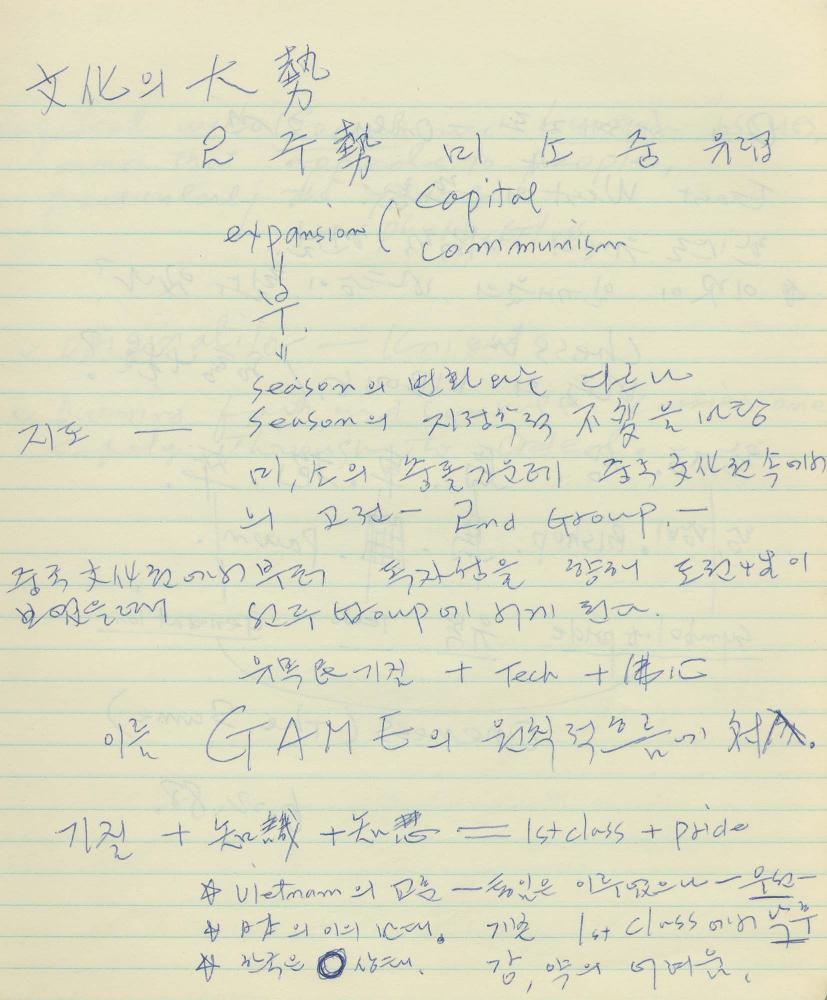 文化의 大勢
오 주勢 미 소 중 유럽
expansion ( Capital
Communism
부.
season의 변화와는 다르나
지도 — season의 지정학적 不變을
미, 소의 충돌가운데 중국文化권속에서
의 고전 - 2nd Group. -
중국文化권에서부터 독자성을 향해
Group에 서게 된다.
유목民기질 + Tech + 佛心
이름 GAME의 원칙적흐름에 対入.
기질 + 知識 + 知慧 = 1st class + pride
* Vietnam의 고층 - 통일은 이루었으나 -
* 日本의 기존 1st class에서
* 한국은 0 상태. 강, 약의 어려움.